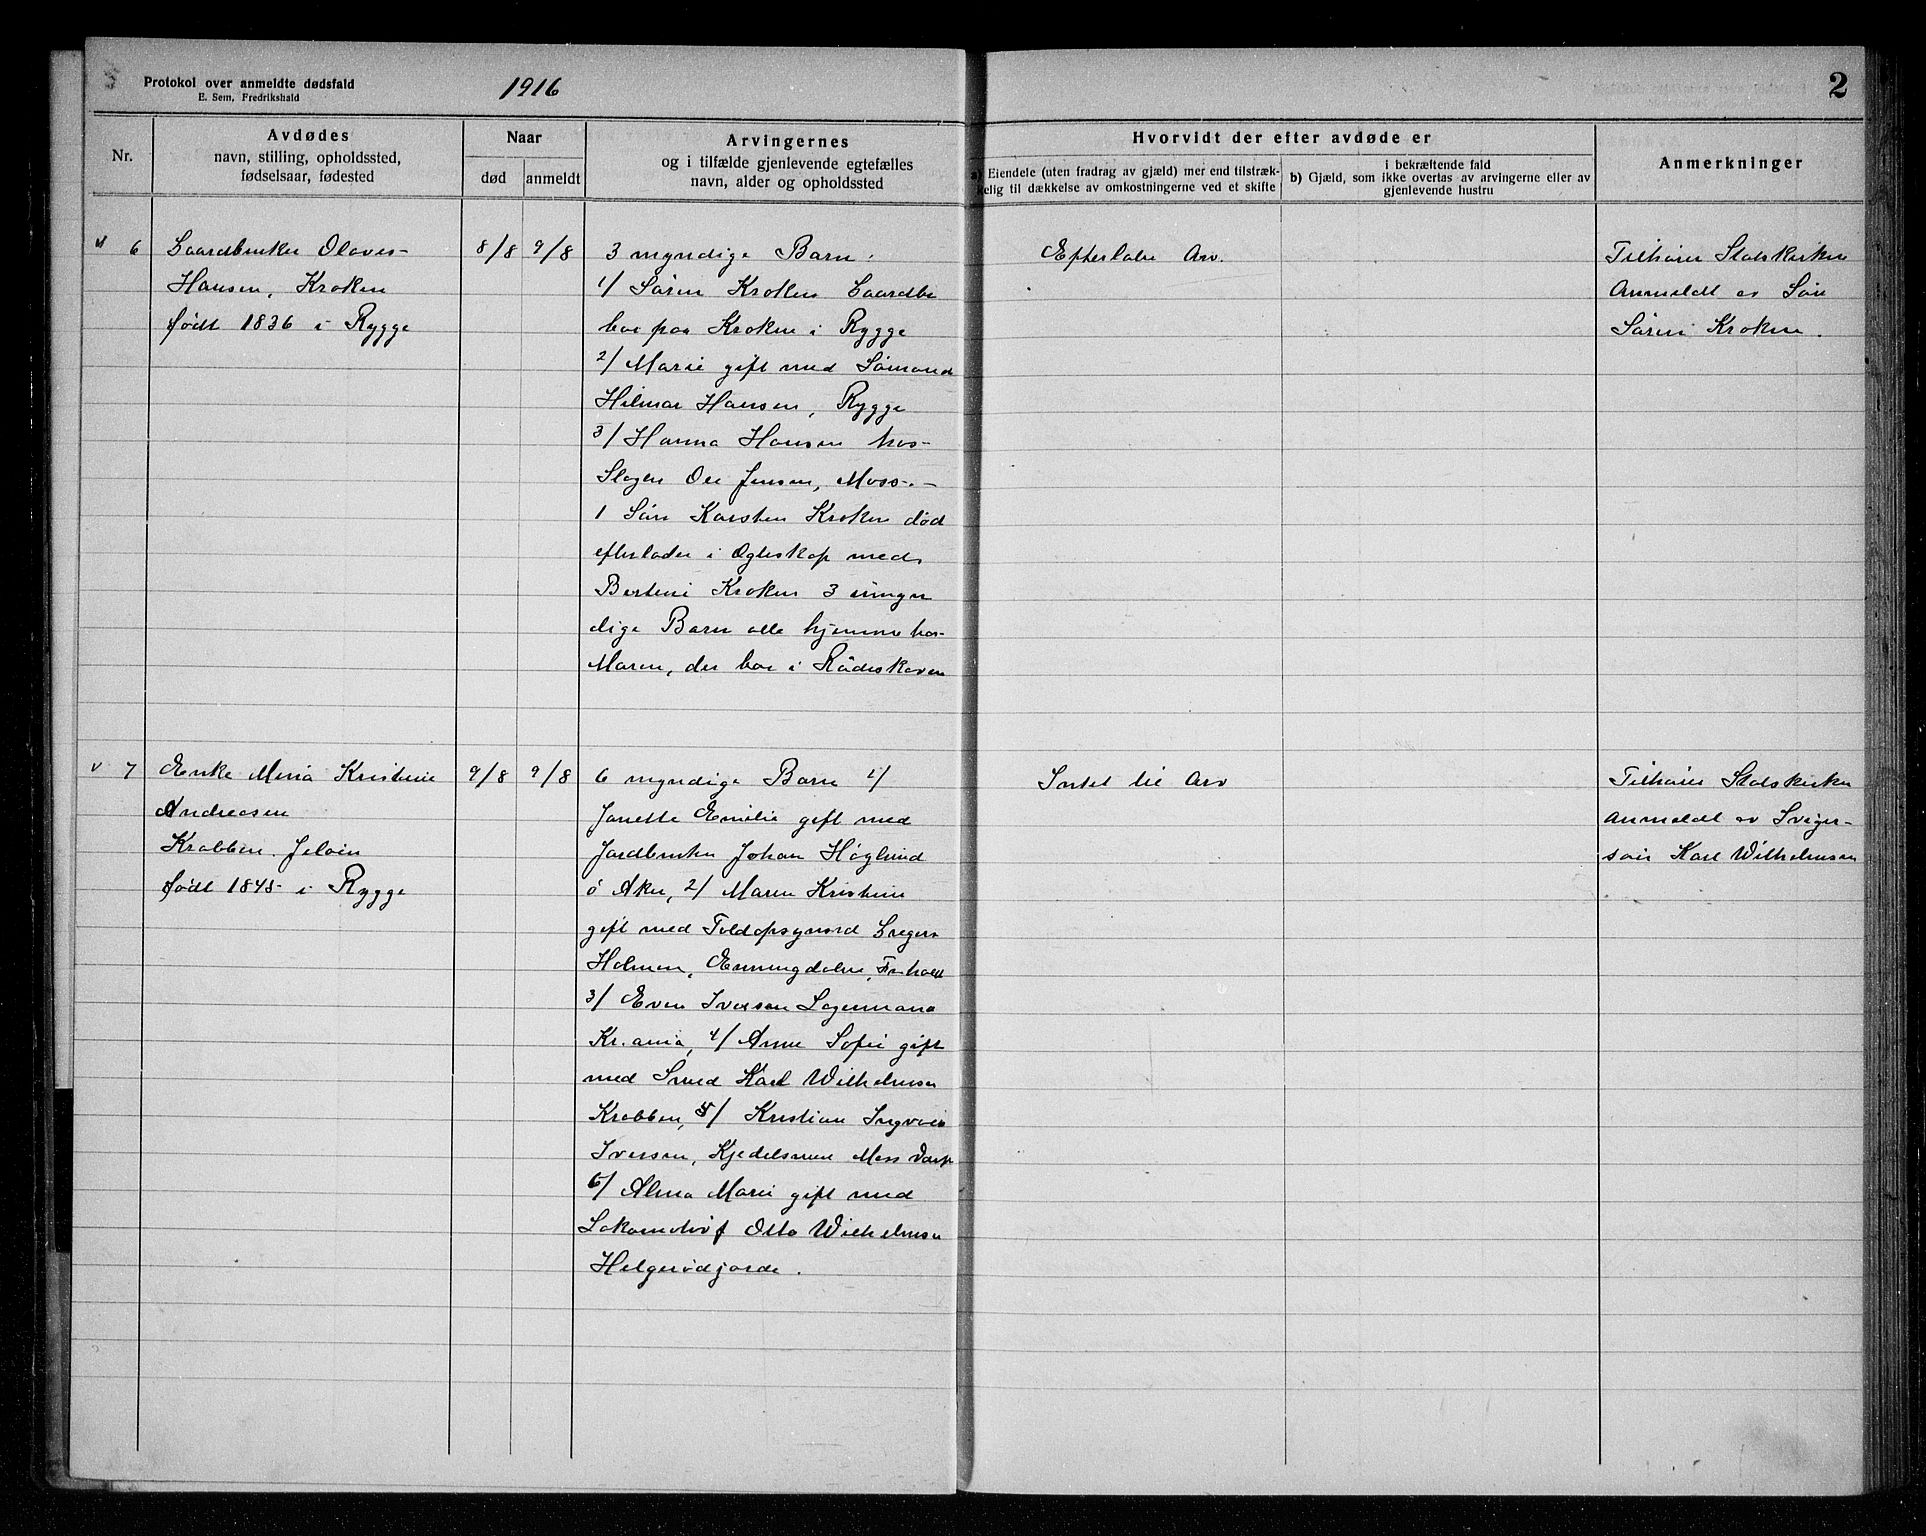 Protokol over anmeldte dødsfald
E. Sem, Fredrikshald
1916
2
Nr.
Avdødes
navn, stilling, opholdssted,
fødselsaar, fødested
Naar
død
anmeldt
Arvingernes
og i tilfælde gjenlevende egtefælles
navn, alder og opholdssted
Hvorvidt der efter avdøde er
a) Eiendele (uten fradrag av gjæld) mer end tilstræk-
kelig til dækkelse av omkostningerne ved et skifte
i bekræftende fald
b) Gjæld, som ikke overtas av arvingerne eller av
gjenlevende hustru
Anmerkninger
6
Gaardbruker Olaves
Hansen, Kroken
født 1836 i Rygge
8/8
9/8
3 myndige Barn:
1/ Søren Kroken Gaardbr
bor paa Kroken i Rygge
2/ Marie gift med Sömand
Hilmar Hansen, Rygge
3/ Hanna Hansen hos
Slagter Ole Jensen, Moss.-
1 Sön Karsten Kroken död
efterlader i Egteskap med
Bertine Kroken 3 umyn
dige Barn alle hjemme hos
Moren, der bor i Rådeskoven
Efterlater Arv.
Tilhörer Statskirken
Anmeldt av Sön
Sören Kroken.
7
Enke Mina Kristine
Andreasen
Krabben, Jelöen
født 1845 i Rygge
9/8
9/8
6 myndige Barn 1/
Janette Emilie gift med
Jordbruker Johan Höglund
ö Aker, 2/ Maren Kristine
gift med Toldopsynsmd Gregers
Holmen, Enningdalen, Fr.hald
3/ Even Iversen Lagermand
Kr.ania, 4/ Anne Sofie gift
med Smed Karl Wilhelmsen
Krabben, 5/ Kristian Ingvald
Iversen, Kjedelsmed Moss Værft
6/ Alma Marie gift med
Lokomotivf Otto Wilhelmsen
Helgerödgjorde.
Intet til Arv
Tilhörer Statskirken
Anmeldt av Sviger-
sön Karl Wilhelmsen